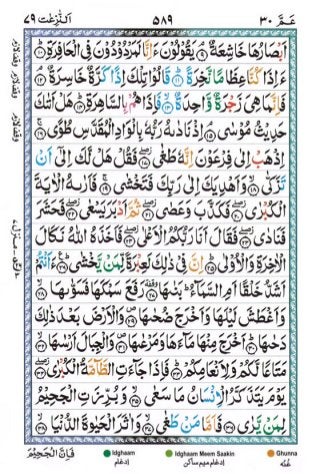 عَمَّ ٣٠ ٥٨٩ اَلنّٰزِعٰت ٧٩
اَبْصَارُهَا خَاشِعَةٌ ۘ ۹ يَقُوْلُوْنَ ءَاِنَّا لَمَرْدُوْدُوْنَ فِى الْحَافِرَةِ ۱۰
ءَاِذَا كُنَّا عِظَامًا نَّخِرَةً ۱۱ قَالُوْا تِلْكَ اِذًا كَرَّةٌ خَاسِرَةٌ ۱۲
فَاِنَّمَا هِىَ زَجْرَةٌ وَّاحِدَةٌ ۱۳ فَاِذَا هُمْ بِالسَّاهِرَةِ ۱۴ هَلْ اَتٰىكَ
حَدِيْثُ مُوْسٰى ۱۵ اِذْ نَادٰىهُ رَبُّهٗ بِالْوَادِ الْمُقَدَّسِ طُوًى ۱۶
اِذْهَبْ اِلٰى فِرْعَوْنَ اِنَّهٗ طَغٰى ۱۷ فَقُلْ هَلْ لَّكَ اِلٰٓى اَنْ
تَزَكّٰى ۱۸ وَاَهْدِيَكَ اِلٰى رَبِّكَ فَتَخْشٰى ۱۹ فَاَرٰىهُ الْاٰيَةَ
الْكُبْرٰى ۲۰ فَكَذَّبَ وَعَصٰى ۲۱ ثُمَّ اَدْبَرَ يَسْعٰى ۲۲ فَحَشَرَ
فَنَادٰى ۲۳ فَقَالَ اَنَا رَبُّكُمُ الْاَعْلٰى ۲۴ فَاَخَذَهُ اللّٰهُ نَكَالَ
الْاٰخِرَةِ وَالْاُوْلٰى ۲۵ اِنَّ فِىْ ذٰلِكَ لَعِبْرَةً لِّمَنْ يَّخْشٰى ۲۶ ءَاَنْتُمْ
اَشَدُّ خَلْقًا اَمِ السَّمَآءُ ؕ بَنٰىهَا ۲۷ رَفَعَ سَمْكَهَا فَسَوّٰىهَا ۲۸
وَاَغْطَشَ لَيْلَهَا وَاَخْرَجَ ضُحٰىهَا ۲۹ وَالْاَرْضَ بَعْدَ ذٰلِكَ
دَحٰىهَا ۳۰ اَخْرَجَ مِنْهَا مَآءَهَا وَمَرْعٰىهَا ۳۱ وَالْجِبَالَ اَرْسٰىهَا ۳۲
مَتَاعًا لَّكُمْ وَلِاَنْعَامِكُمْ ۳۳ فَاِذَا جَآءَتِ الطَّآمَّةُ الْكُبْرٰى ۳۴
يَوْمَ يَتَذَكَّرُ الْاِنْسَانُ مَا سَعٰى ۳۵ وَبُرِّزَتِ الْجَحِيْمُ
لِمَنْ يَّرٰى ۳۶ فَاَمَّا مَنْ طَغٰى ۳۷ وَاٰثَرَ الْحَيٰوةَ الدُّنْيَا ۳۸
فَاِنَّ الْجَحِيْمَ
Idghaam
ادغام
Idghaam Meem Saakin
ادغام میم ساکن
Ghunna
غنّہ